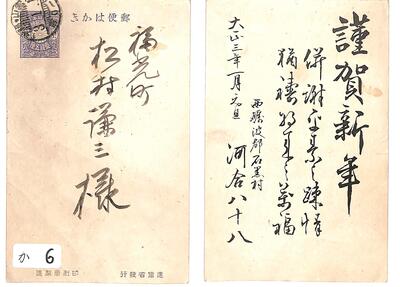 郵便はかき
福光町
松村謙三様
か 6
謹賀新年
併謝平素之疎情
猶祷将来之萬福
大正三年一月元旦
西礪波郡石黒村
河合八十八